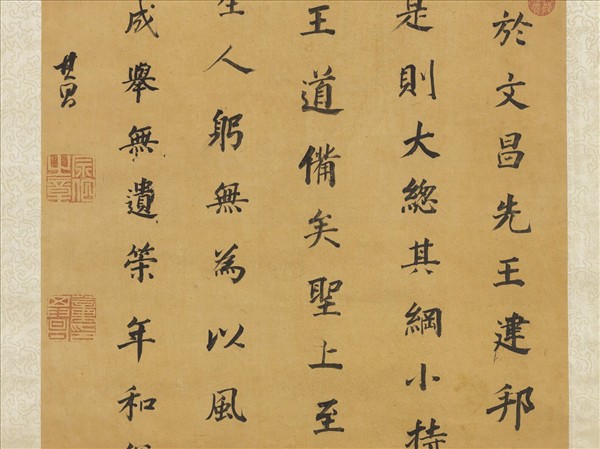 於文昌先王建邦
是則大總其綱小持
王道備矣聖上至
人躬無為以風
成舉無遺策年和
其昌